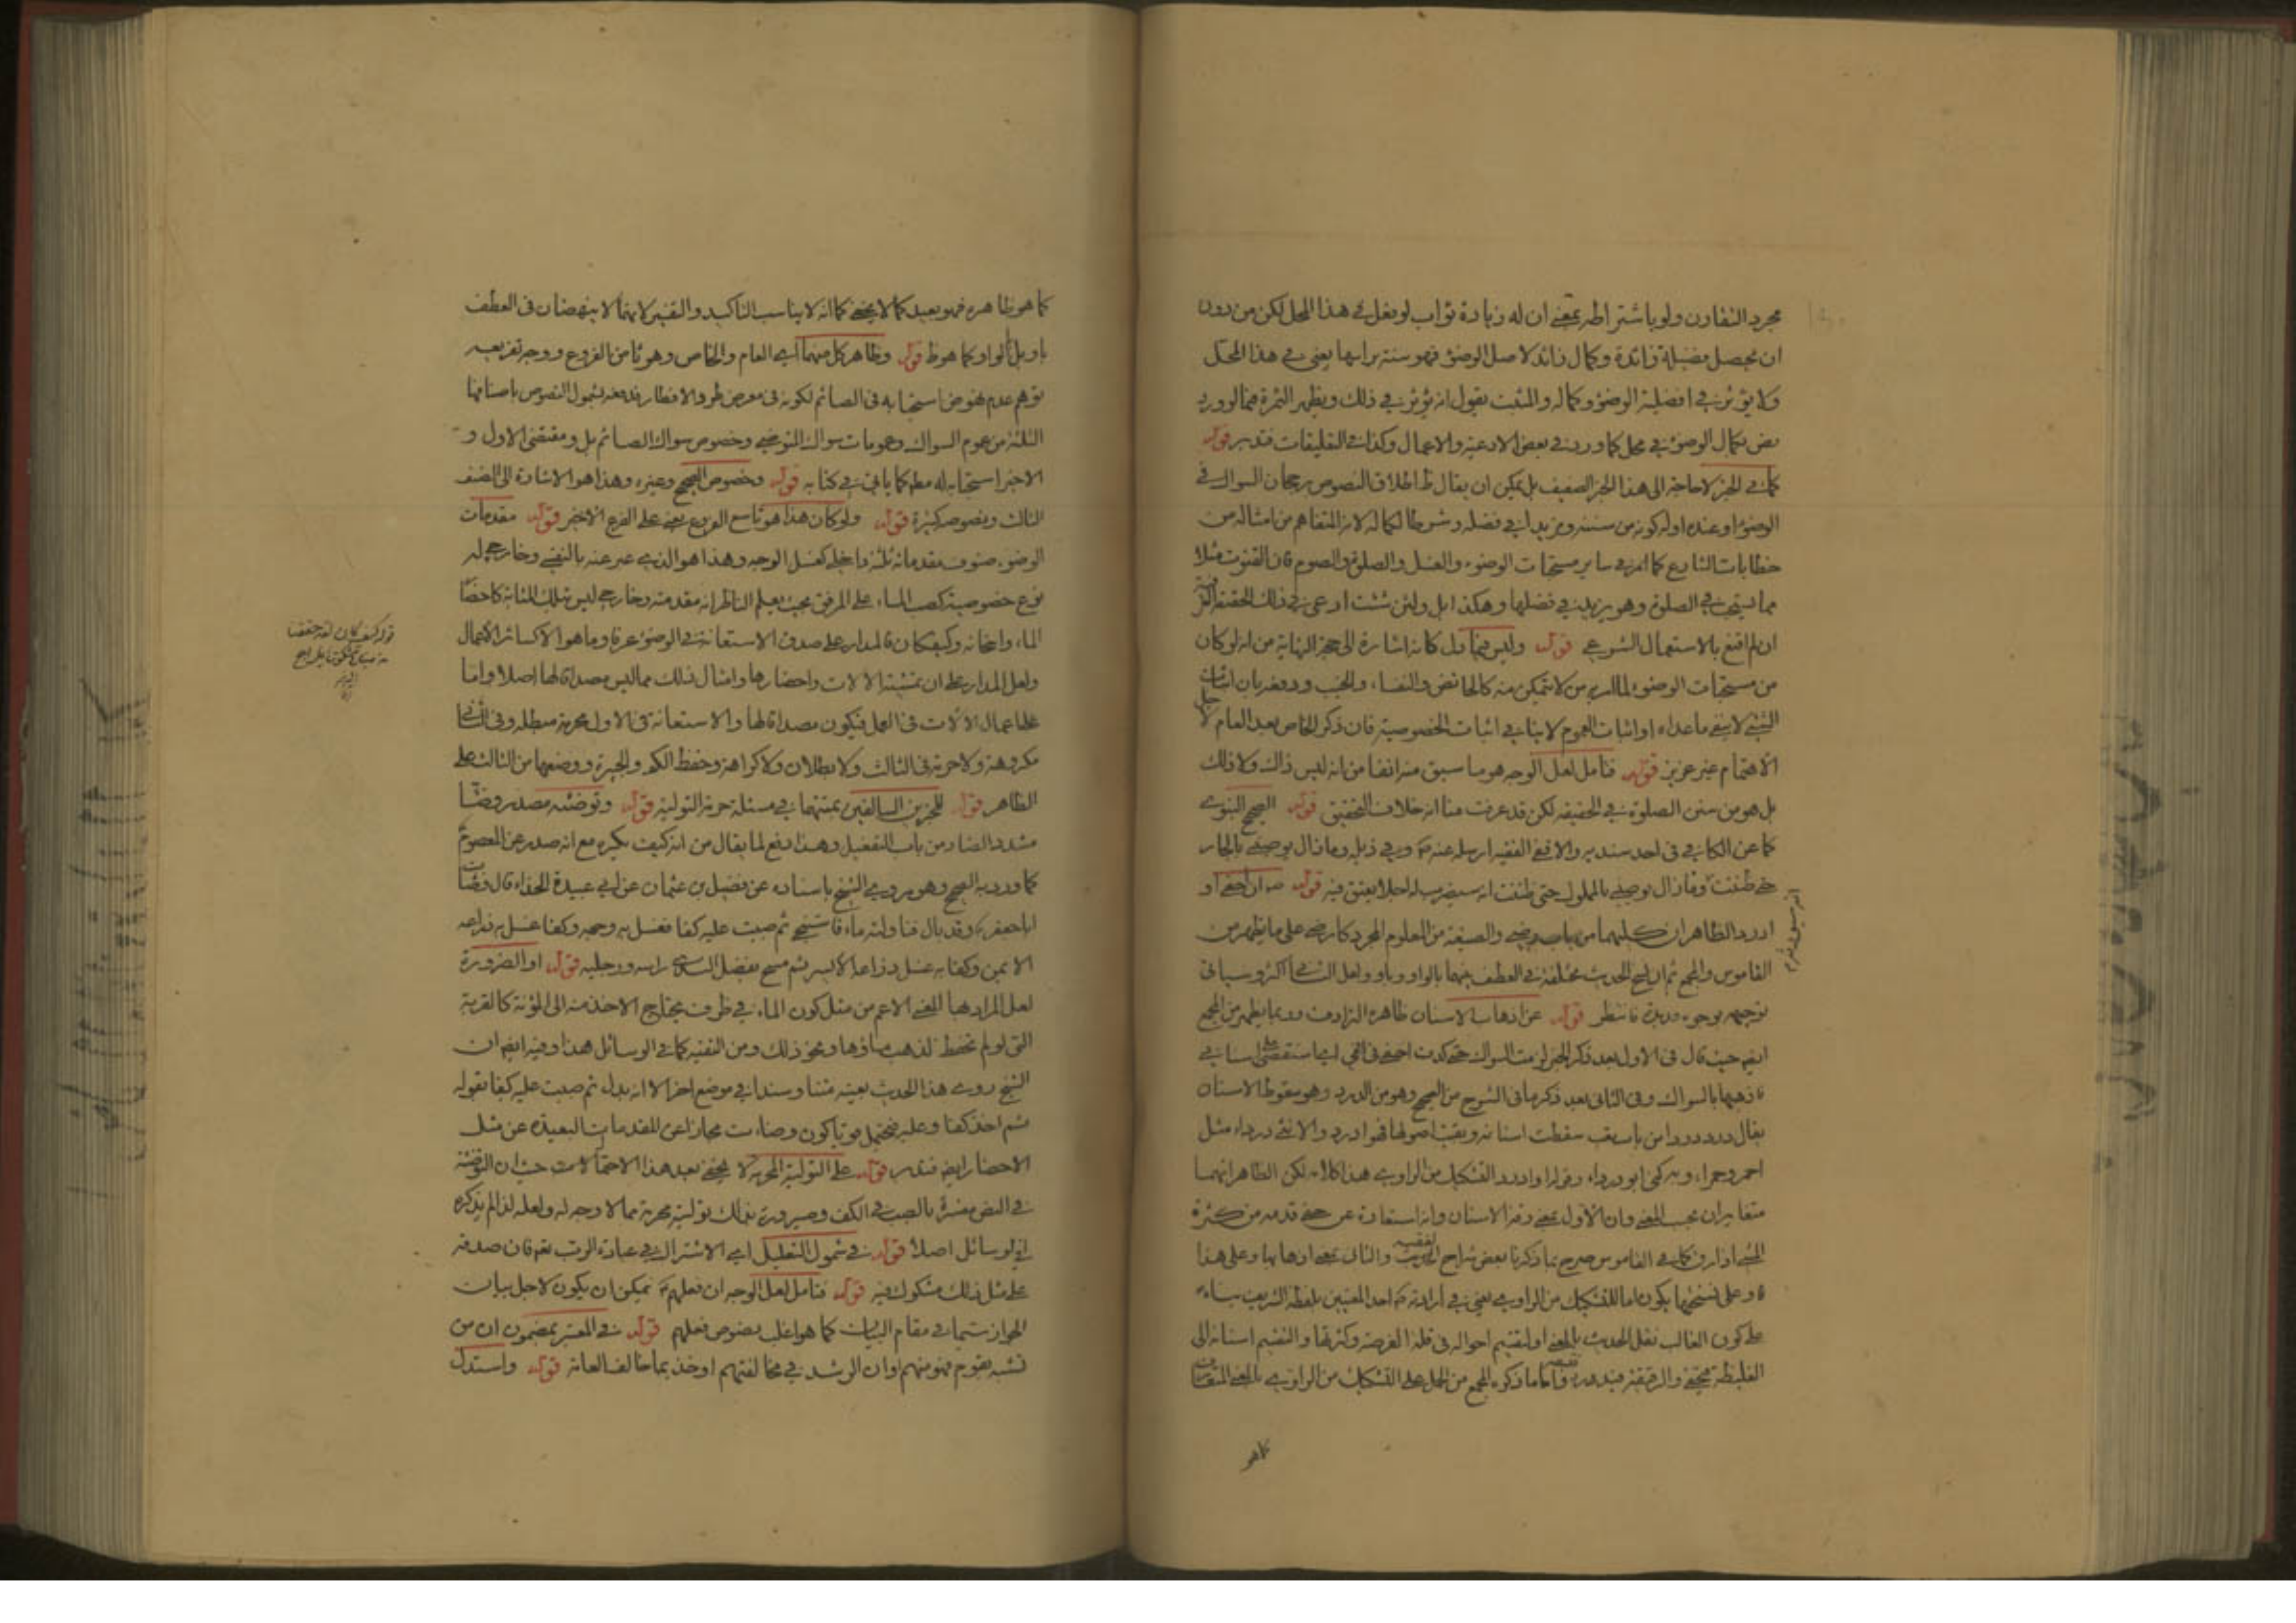 مجرد التقارن ولو باشتراطه بمعنى ان له زيادة ثواب لو فعل في هذا المحل لكن من دون
ان يحصل فضيلة زائدة وكمال زائد لاصل الوضوء فهو سنة براسها يعني في هذا المحل
ولا يؤثر في افضلية الوضوء وكماله والمثبت يقول انه يؤثر في ذلك ويظهر الثمرة فيما لو ورد
نص بكمال الوضوء في محل كما ورد في بعض الادعية والاعمال وكذا في التعليقات فتدبر قوله
كما في الخبر لا حاجة الى هذا الخبر الضعيف بل يمكن ان يقال اطلاق النصوص برجحان السواك في
الوضوء او عنده اوله كونه من سننه ومزيدا في فضله وشرطا لكماله لانه المتفاهم من امثاله من
خطابات الشارع كما انه في ساير مستحبات الوضوء والغسل والصلوة والصوم فان القنوت مثلا
مما يستحب في الصلوة وهو يزيد في فضلها وهكذا بل ولئن شئت ادعى في ذلك الحقيقة
ان لم اقنع بالاستعمال الشرعي قوله وليس فيما دل كانه اشارة الى حجة النهاية من انه لو كان
من مستحبات الوضوء لما امر به من لا يتمكن منه كالحائض والنفساء والجنب ودفعه بان اثبات
الشيء لا ينفي ما عداه او اثبات العموم لا ينافي اثبات الخصوصية فان ذكر الخاص بعد العام
الاهتمام غير عزيز قوله فتامل لعل الوجه هو ما سبق منه انفا من انه ليس ذاك ولا ذلك
بل هو من سنن الصلوة في الحقيقة لكن قد عرفت منا انه خلاف التحقيق قوله الصحيح النبوي
كما عن الكافي في احد سنديه والا ففي الفقيه ارسله عنه وفي ذيله وما زال يوصيني بالجار
حتى ظننت وما زال يوصيني بالمملوك حتى ظننت انه سيضرب له اجلا يعتق فيه قوله ان احفى او
ادرد الظاهر ان كليهما من باب رضي والصيغة من المعلوم المجرد كارضى على ما يظهر من
القاموس والمجمع ثم ان نسخ الحديث مختلفة في العطف بينهما بالواو وباو ولعل الثاني اكثر وسياتي
توجيهه بوجوه عديدة فانتظر قوله عن اذهاب الاسنان ظاهره الترادف وربما يظهر من المجمع
ايضا حيث قال في الاول بعد ذكر الخبر لزمت السواك حتى كدت احفي في اي استقصي على اسناني
فاذهبها بالسواك وفي الثاني بعد ذكر ما في الشرح من الصحيح وهو من الدرد وهو سقوط الاسنان
يقال درد دردا من باب تعب سقطت اسنانه وبقيت اصولها فهو ادرد والانثى درداء مثل
احمر وحمراء وبه كني ابو درداء وقوله او ادرد التشكيك من الراوي هذا كلامه لكن الظاهر انهما
متغايران بحسب المعنى وان الاول بمعنى رقة الاسنان وانه استعارة عن حفي قدمه من كثرة
المشي اذا رق كما في القاموس صرح بما ذكرنا بعض شراح الفقيه والثاني بمعنى اذهابها وعلى هذا
وعلى نسختها يكون اما للتشكيك من الراوي يعني في ارادته احد المعنيين بلفظه الشريف بناء
على كون الغالب نقل الحديث بالمعنى او لتقسيم احواله في قلة الفرصة وكثرتها والتقسيم اسنانه الى
الغليظة فتحفى والرقيقة فتدرد واما ما ذكره المجمع من الحمل على التشكيك من الراوي بالمعنى
كما هو
كما هو ظاهره فهو بعيد كما لا يخفى كما انه لا يناسب التاكيد والتفسير لانهما لا ينهضان في العطف
باو بل الواو كما هو ظ قوله وظاهر كل منهما اي العام والخاص وهو ثامن الفروع ووجه تفريعه
توهم عدم نهوض استحبابه في الصائم لكونه في معرض طرو الافطار فدفعه بشمول النصوص باصنافها
الثلثة من عموم السواك وعمومات سواك المتوضي وخصوص سواك الصائم بل ومقتضى الاول و
الاخير استحبابه له مطلقا كما ياتي في كتابه قوله وخصوص الصحيح وغيره وهذا هو الاشارة الى الصنف
الثالث ونصوصه كثيرة قوله ولو كان هذا هو تاسع الفروع يعني على الفرع الاخير قوله مقدمات
الوضوء صنوف مقدماته ثلثة داخلة كغسل الوجه وهذا هو الذي عبر عنه بالنفس وخارج له
نوع خصوصية كصب الماء على المرفق بحيث يعلم الناظر انه مقدمته وخارج ليس بتلك المثابة كاحضار
الماء واسخانه وكيف كان فالمدار على صدق الاستعانة في الوضوء عرفا وما هو الا كسائر الاعمال
ولعل المدار على ان تهيئة الالات واحضارها وامثال ذلك مما ليس مصداقا لها اصلا واما
اعمال الالات في العمل فيكون مصداقا لها والاستعانة في الاول محرمة مبطلة وفي الثاني
مكروهة ولا حرمة في الثالث ولا بطلان ولا كراهة وحفظ الكم والجبيرة ووضعها من الثالث على
الظاهر قوله للخبرين السالفين بمتنهما في مسئلة حرمة التولية قوله وتوضئة مصدر وضأ
مشدد الضاد من باب التفعيل وهذا دفع لما يقال من انه كيف يكره مع انه صدر عن المعصوم
كما ورد به الصحيح وهو مروي الشيخ باسناده عن فضيل بن عثمان عن ابي عبيدة الحذاء قال وضات
ابا جعفر وقد بال فناولته ماء فاستنجى ثم صببت عليه كفا فغسل به وجهه وكفا غسل به ذراعه
الايمن وكفا به غسل ذراعه الايسر ثم مسح بفضل الندى راسه ورجليه قوله او الضرورة
لعل المراد بها المعنى الاعم من مثل كون الماء في ظرف يحتاج الاخذ منه الى المؤنة كالقربة
التي لو لم تحفظ لذهب ماؤها ونحو ذلك ومن التقية كما في الوسائل هذا وفيه ايضا ان
الشيخ روى هذا الحديث بعينه متنا وسندا في موضع اخر الا انه بدل ثم صببت عليه كفا بقوله
ثم اخذ كفا وعليه فيحتمل قويا كون وضات مجازا عن المقدمات البعيدة عن مثل
الاحضار ايضا فتدبر قوله على التولية المحرمة لا يخفى بعد هذا الاحتمالات حيث ان التوضئة
في النص مفسرة بالصب في الكف وصيرورة بذلك تولية محرمة مما لا وجه له ولعله لذا لم يذكره
في الوسائل اصلا قوله في شمول التعليل اي الاشراك في عبادة الرب نعم فان صدقه
على مثل ذلك مشكوك فيه قوله فتامل لعل الوجه ان فعلهم يمكن ان يكون لاجل بيان
الجواز سيما في مقام البيان كما هو اغلب بنصوص فعلهم قوله في المعتبر بمضمون ان من
تشبه بقوم فهو منهم وان الرشد في مخالفتهم او خذ بما خالف العامة قوله واستدل